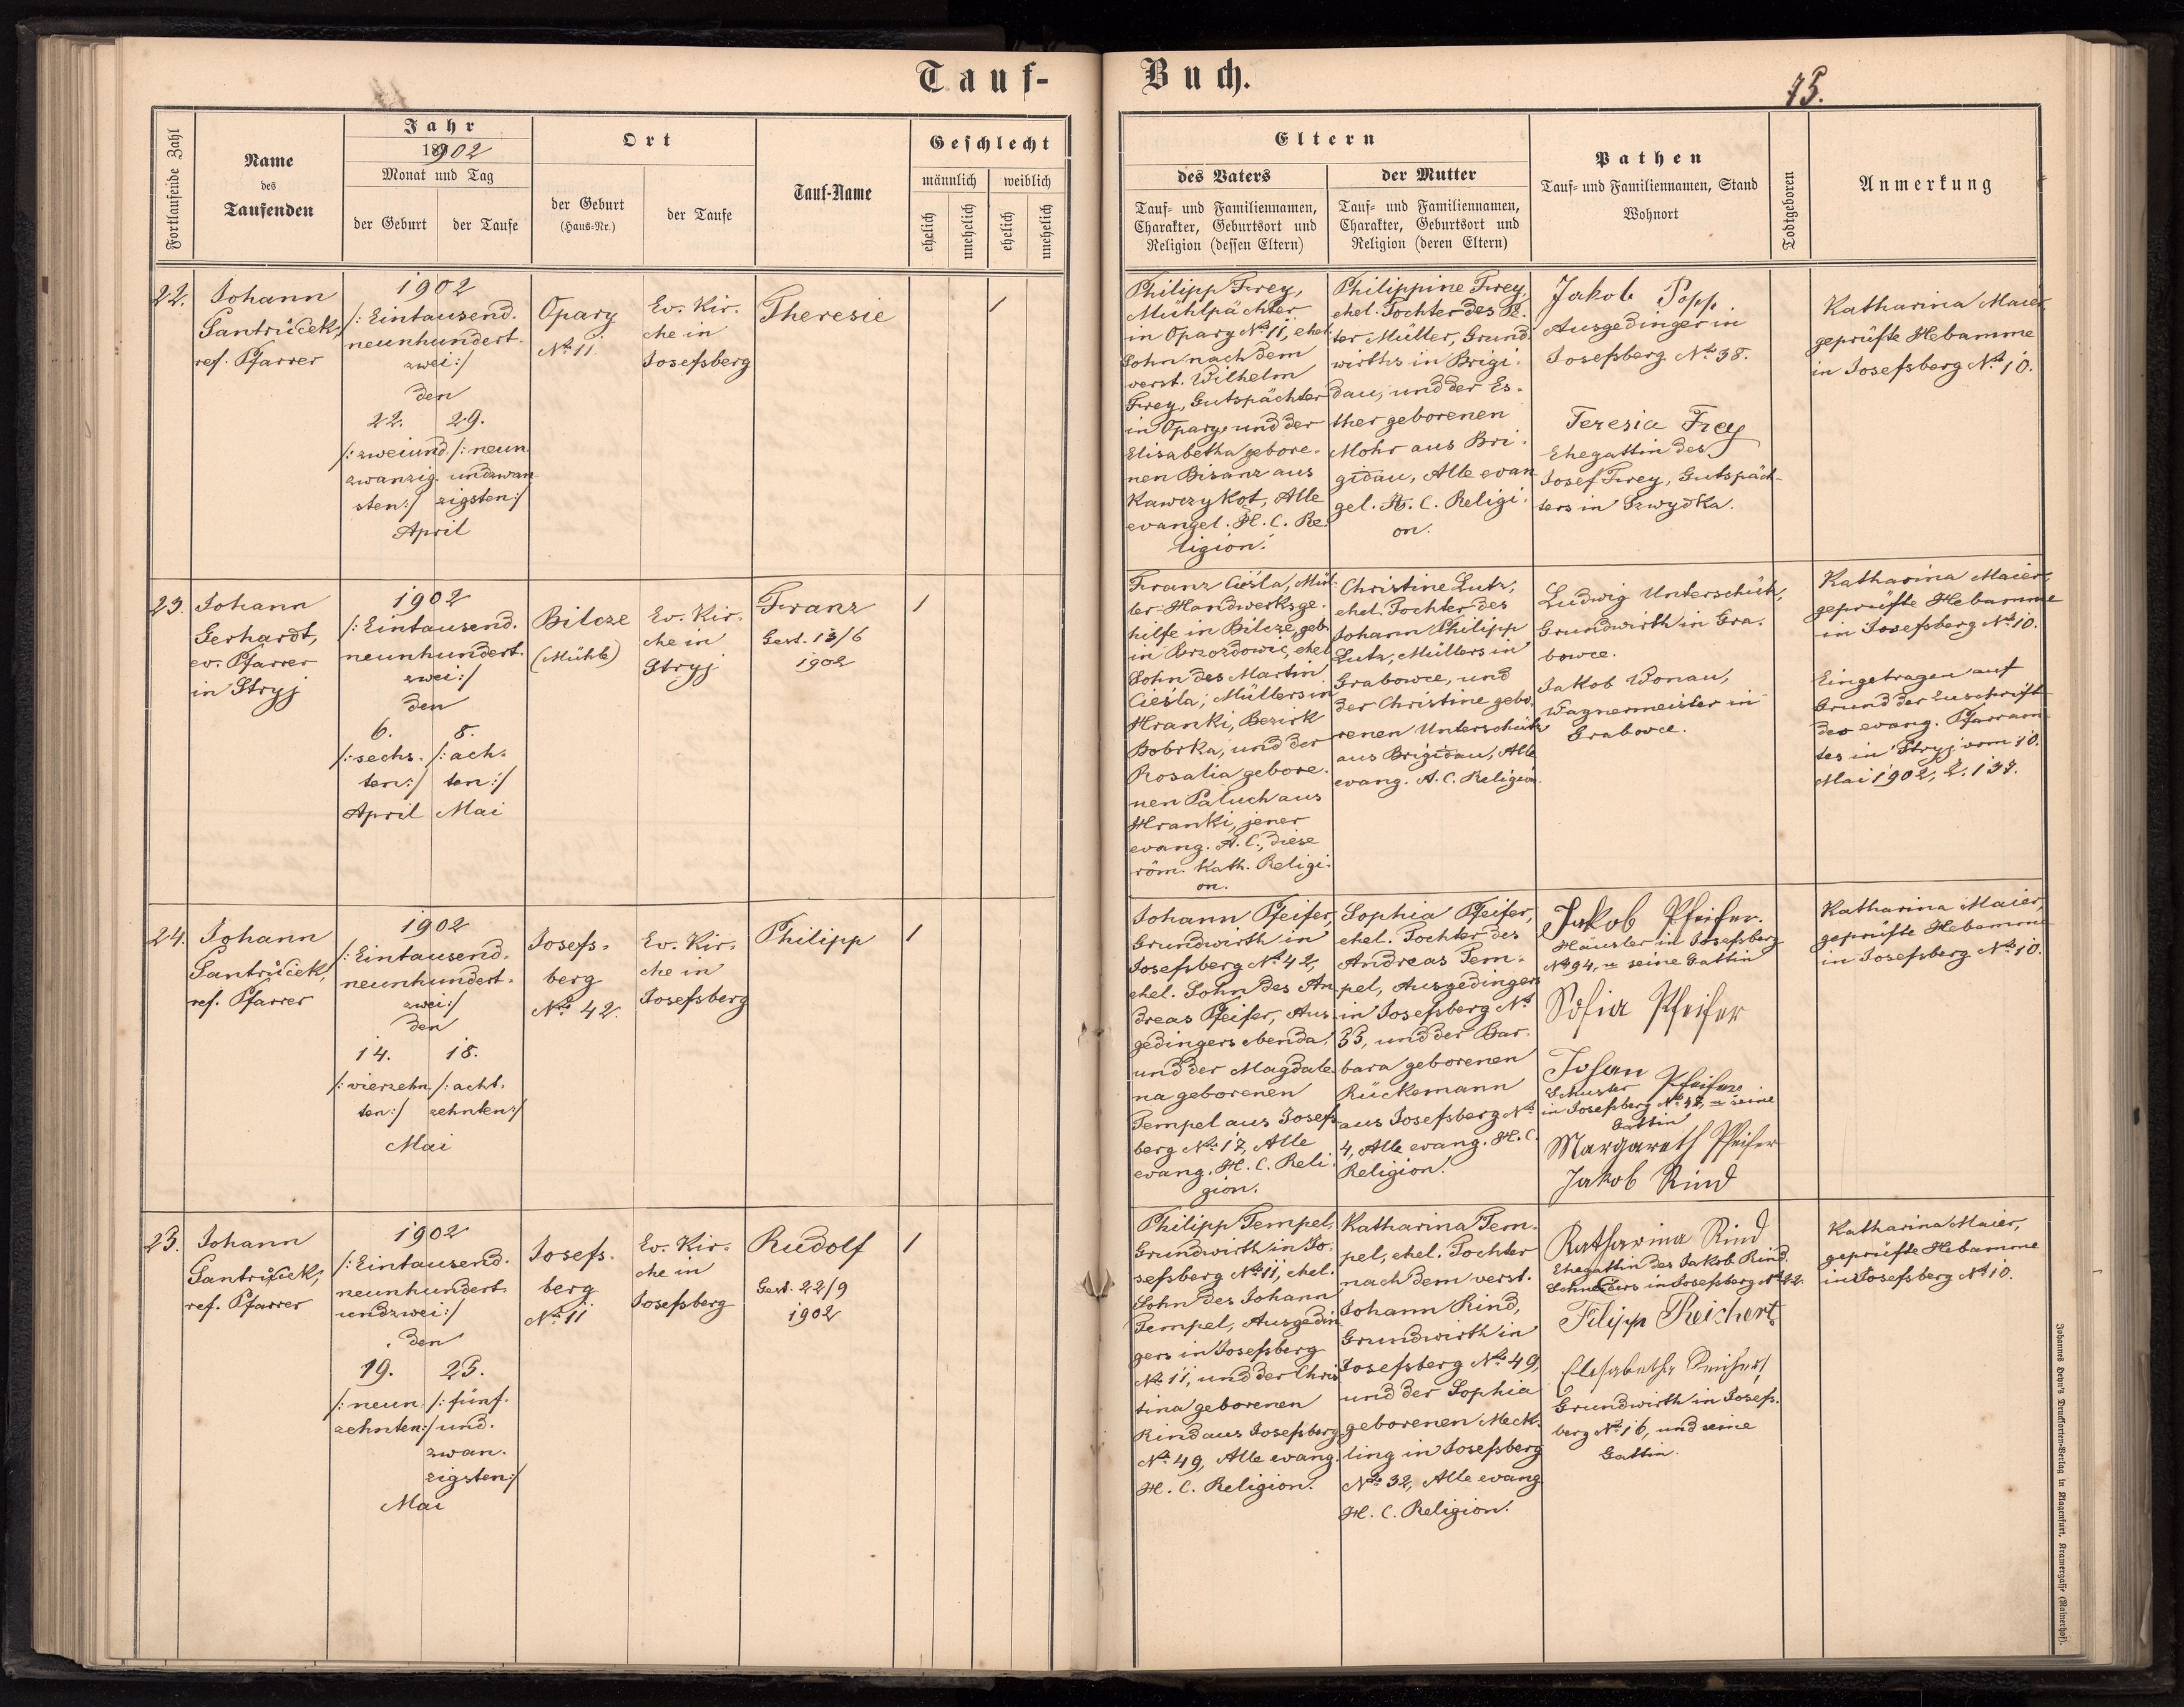 Tauf-
Buch.
75.
Fortlaufende Zahl
Name
des
Taufenden
Jahr
1902
Monat und Tag
der Geburt
der Taufe
Ort
der Geburt
(Haus-Nr.)
der Taufe
Tauf-Name
Geschlecht
männlich
weiblich
ehelich
unehelich
ehelich
unehelich
Eltern
des Vaters
Tauf- und Familiennamen,
Charakter, Geburtsort und
Religion (dessen Eltern)
der Mutter
Tauf- und Familiennamen,
Charakter, Geburtsort und
Religion (deren Eltern)
Pathen
Tauf- und Familiennamen, Stand
Wohnort
Todtgeboren
Anmerkung
22.
Johann
Santrůček,
ref. Pfarrer
1902
/: Eintausend.
neunhundert.
zwei:/
den
22. 29.
/: zweiund. /: neun.
zwanzig. undzwan
sten:/ zigsten:/
April
Opary
No 11
Ev. Kir.
che in
Josefsberg
Theresie
1
Philipp Frey,
Mühlpächter
in Opary No 11, ehel.
Sohn nach dem
verst. Wilhelm
Frey, Gutspächter
in Opary, und der
Elisabetha gebore.
nen Bisanz aus
Kawczykot, Alle
evangel. H. C. Re.
ligion.
Philippine Frey,
ehel. Tochter des Pe.
ter Müller, Grund.
wirths in Brigi.
dau, und der Es.
ther geborenen
Mohr aus Bri.
gidau, Alle evan
gel. H. C. Religi.
on.
Jakob Popp
Ausgedinger in
Josefsberg No 38.
Teresia Frey
Ehegattin des
Josef Frey, Gutspäch-
ters in
Katharina Maier,
geprüfte Hebamme
in Josefsberg No 10.
23.
Johann
Gerhardt,
ev. Pfarrer
in Stryj
1902
/: Eintausend.
neunhundert.
zwei:/
den
6. 8.
/: sechs. /: ach.
ten:/ ten:/
April Mai
Bilcze
(Mühle)
Ev. Kir.
che in
Stryj
Franz
Gest. 13/6
1902
1
Franz Cieśla, Mül.
ler-Handwerksge.
hilfe in Bilcze, geb.
in Brzozdowic, ehel.
Sohn des Martin
Cieśla, Müllers in
Hranki, Bezirk
Bobrka, und der
Rosalia gebore.
nen Paluch aus
Hranki, jener
evang. A. C., diese
röm. Kath. Religi.
on.
Christine Lutz,
ehel. Tochter des
Johann Philipp
Lutz, Müllers in
Grabowce, und
der Christine gebo.
renen Unterschütz
aus Brigidau, Alle
evang. A. C. Religion.
Ludwig Unterschütz,
Grundwirth in Gra.
bowce.
Jakob Wonau,
Wagnermeister in
Grabowce.
Katharina Maier,
geprüfte Hebamme
in Josefsberg No 10.
Eingetragen auf
Grund der Zuschrift
des evang. Pfarram
tes in Stryj vom 10.
Mai 1902, Z. 137.
24.
Johann
Santrůček,
ref. Pfarrer
1902
/: Eintausend.
neunhundert.
zwei:/
den
14. 18.
/: vierzehn. /: acht.
ten:/ zehnten:/
Mai
Josefs.
berg
No 42.
Ev. Kir.
che in
Josefsberg
Philipp
1
Johann Pfeifer,
Grundwirth in
Josefsberg No 42,
ehel. Sohn des An
dreas Pfeifer, Aus.
gedingers ebenda,
und der Magdale.
na geborenen
Tempel aus Josefs
berg No 17, Alle
evang. H. C. Reli.
gion.
Sophia Pfeifer,
ehel. Tochter des
Andreas Tem.
pel, Ausgedingers
in Josefsberg No
33, und der Bar.
bara geborenen
Rückemann
aus Josefsberg No
4, Alle evang. H. C.
Religion.
Jakob Pfeifer.
Häusler in Josefsberg
No 94, u. seine Gattin
Sofia Pfeifer
Johan Pfeifer
Schuster
in Josefsberg No 48, u. seine
Gattin
Margareth Pfeifer
Jakob Rind
Katharina Maier,
geprüfte Hebamme
in Josefsberg No 10.
25.
Johann
Santrůček,
ref. Pfarrer
1902
/: Eintausend.
neunhundert
undzwei:/
den
19. 25.
/: neun. /: fünf.
zehnten:/ und.
zwan.
zigsten:/
Mai
Josefs.
berg
No 11
Ev. Kir.
che in
Josefsberg
Rudolf
Gest. 22/9
1902
1
Philipp Tempel,
Grundwirth in Jo.
sefsberg No 11, ehel.
Sohn des Johann
Tempel, Ausgedin
gers in Josefsberg
No 11, und der Chris
tina geborenen
Rind aus Josefsberg
No 49, Alle evang.
H. C. Religion.
Katharina Tem.
pel, ehel. Tochter
nach dem verst.
Johann Rind,
Grundwirth in
Josefsberg No 49,
und der Sophia
geborenen Meck.
ling in Josefsberg
No 32, Alle evang
H. C. Religion.
Katharina Rind
Ehegattin des Jakob Rind,
Schneiders in Josefsberg No 22.
Filipp Reichert
Elisabetha Reichert
Grundwirth in Josefs.
berg No 16, und seine
Gattin.
Katharina Maier,
geprüfte Hebamme
in Josefsberg No 10.
Johannes Heyn's Drucksorten-Verlag in Klagenfurt, Kramergasse (Rainerhof).